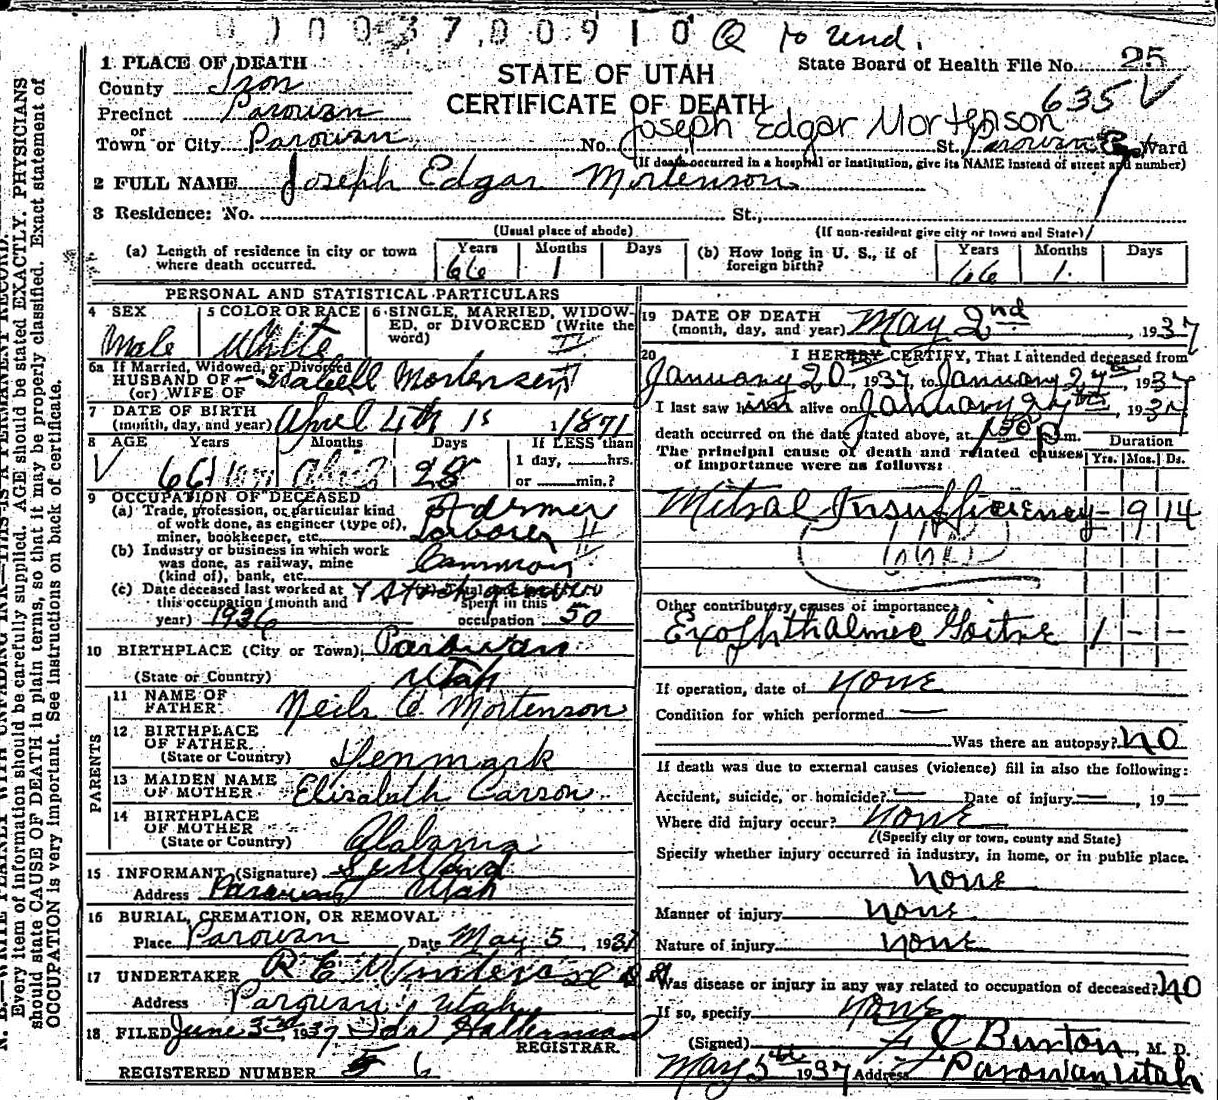 0000370 0910 Q to send.
1 PLACE OF DEATH
County Iron
Precinct Parowan
or
Town or City Parowan
STATE OF UTAH
CERTIFICATE OF DEATH
State Board of Health File No. 25
635
Joseph Edgar Mortenson
No. St., Parowan Ward
(If death occurred in a hospital or institution, give its NAME instead of street and number)
2 FULL NAME Joseph Edgar Mortenson
3 Residence: No. St.,
(Usual place of abode) (If non-resident give city or town and State)
(a) Length of residence in city or town where death occurred. Years 66 Months 1 Days
(b) How long in U. S., if of foreign birth? Years 66 Months 1 Days
PERSONAL AND STATISTICAL PARTICULARS
4 SEX Male
5 COLOR OR RACE White
6 SINGLE, MARRIED, WIDOWED, or DIVORCED (Write the word)
6a If Married, Widowed, or Divorced
HUSBAND OF Isabell Mortensen
(or) WIFE OF
7 DATE OF BIRTH
(month, day, and year) April 4th 1871
8 AGE Years 66 Months Days 28
If LESS than
1 day, hrs.
or min.?
9 OCCUPATION OF DECEASED
(a) Trade, profession, or particular kind of work done, as engineer (type of), miner, bookkeeper, etc. Farmer Laborer
(b) Industry or business in which work was done, as railway, mine (kind of), bank, etc. Common
(c) Date deceased last worked at this occupation (month and year) 1936
spent in this occupation 50
10 BIRTHPLACE (City or Town) Parowan
(State or Country) Utah
PARENTS
11 NAME OF FATHER Neils Mortenson
12 BIRTHPLACE OF FATHER
(State or Country) Denmark
13 MAIDEN NAME OF MOTHER Elisabath Carson
14 BIRTHPLACE OF MOTHER
(State or Country) Alabama
15 INFORMANT (Signature)
Address Parowan Utah
16 BURIAL, CREMATION, OR REMOVAL
Place Parowan Date May 5, 1937
17 UNDERTAKER R E
Address Parowan, Utah
18 FILED June 3rd, 1937 Ida Halterman
REGISTRAR.
REGISTERED NUMBER 5 6
19 DATE OF DEATH
(month, day, and year) May 2nd, 1937
20 I HEREBY CERTIFY, That I attended deceased from
January 20, 1937, to January 27th, 1937
I last saw him alive on January 27th, 1937
death occurred on the date stated above, at 1:30 P.m.
The principal cause of death and related causes of importance were as follows:
Duration
Yrs. Mos. Ds.
Mitral Insufficiency - 9 14
Other contributory causes of importance
Exophthalmic Goitre 1 - -
If operation, date of none
Condition for which performed —
Was there an autopsy? No
If death was due to external causes (violence) fill in also the following:
Accident, suicide, or homicide? — Date of injury —, 19 —
Where did injury occur? None
(Specify city or town, county and State)
Specify whether injury occurred in industry, in home, or in public place.
none
Manner of injury none
Nature of injury none
Was disease or injury in any way related to occupation of deceased? No
If so, specify none
(Signed) Burton, M. D.
May 5th 1937 Address Parowan Utah
N. B.—WRITE PLAINLY WITH UNFADING INK—THIS IS A PERMANENT RECORD.
Every item of information should be carefully supplied. AGE should be stated EXACTLY. PHYSICIANS
should state CAUSE OF DEATH in plain terms, so that it may be properly classified. Exact statement of
OCCUPATION is very important. See instructions on back of certificate.